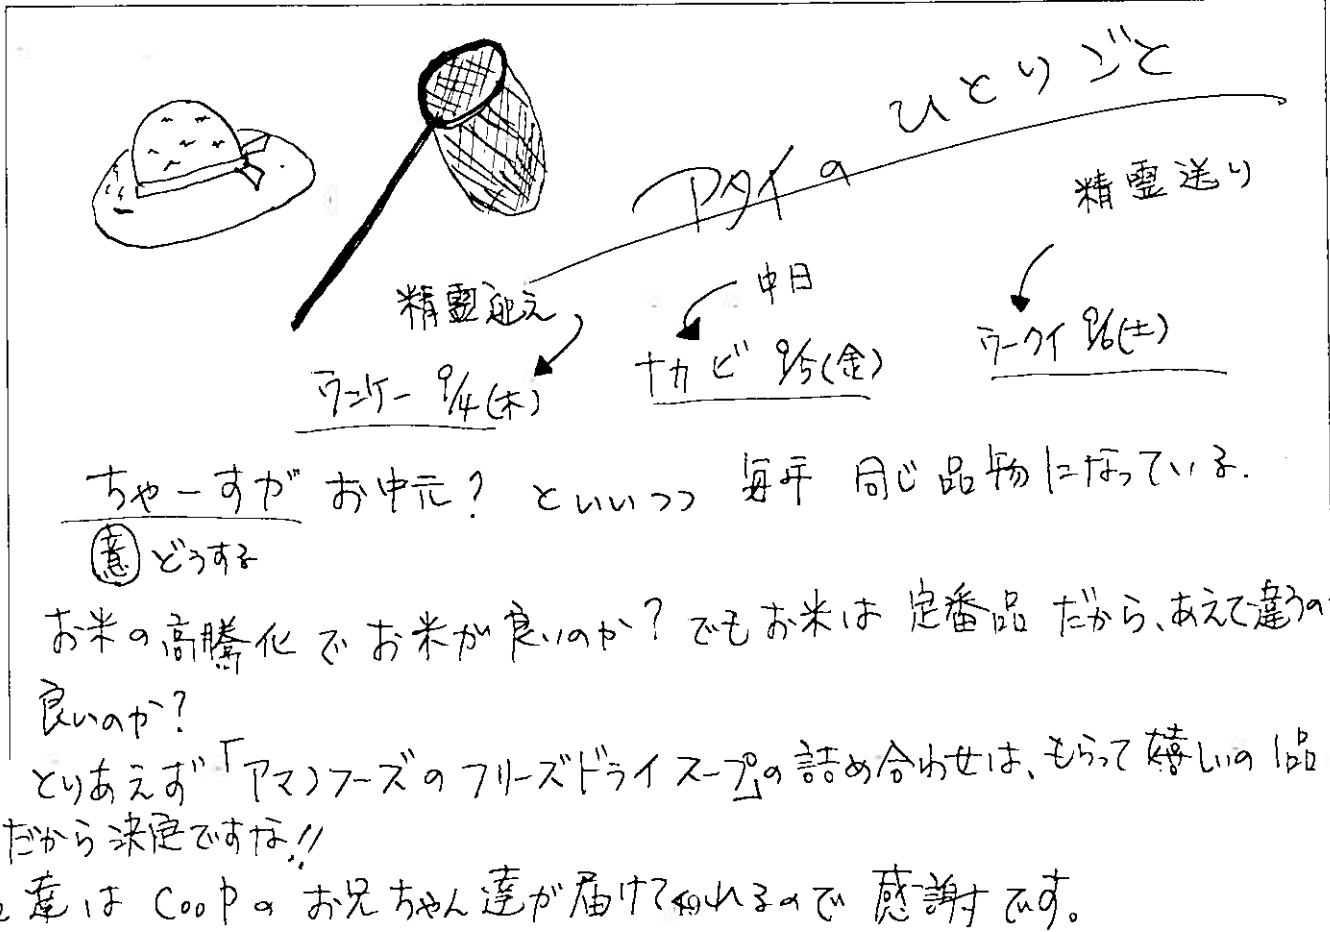 アタイの ひとりごと
精霊迎え
ウンケー 9/4(木)
中日
ナカビ 9/5(金)
精霊送り
ウークイ 9/6(土)
ちゃーすが お中元? といいつつ 毎年 同じ品物になっている.
意 どうする
お米の高騰化で お米が良いのか? でもお米は 定番品 だから、あえて違うの
良いのか?
とりあえず「アマノフーズのフリーズドライスープ」の詰め合わせは、もらって嬉しいの1品
だから決定ですな!!
達は Coopの お兄ちゃん達が届けてくれるので 感謝です。